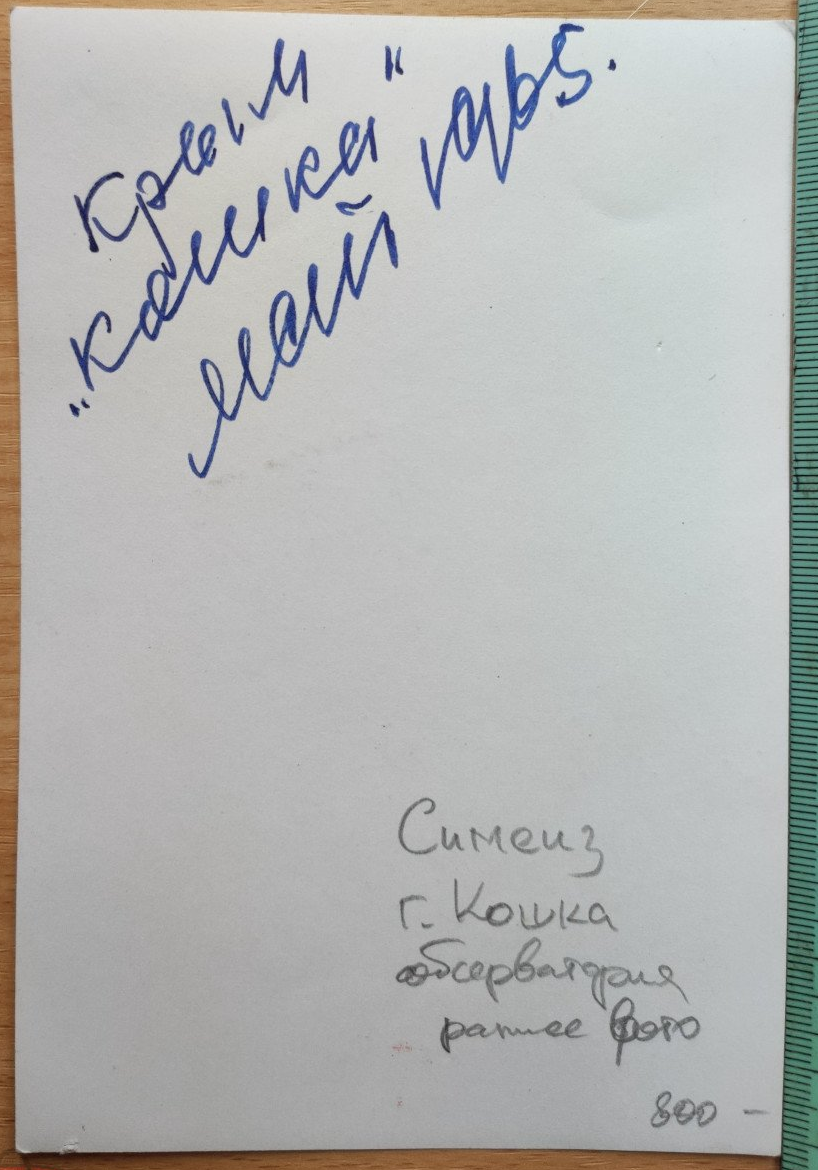 Крым
„кошка“
май 1965.
Симеиз
г. Кошка
обсерватория
раннее фото
800 –